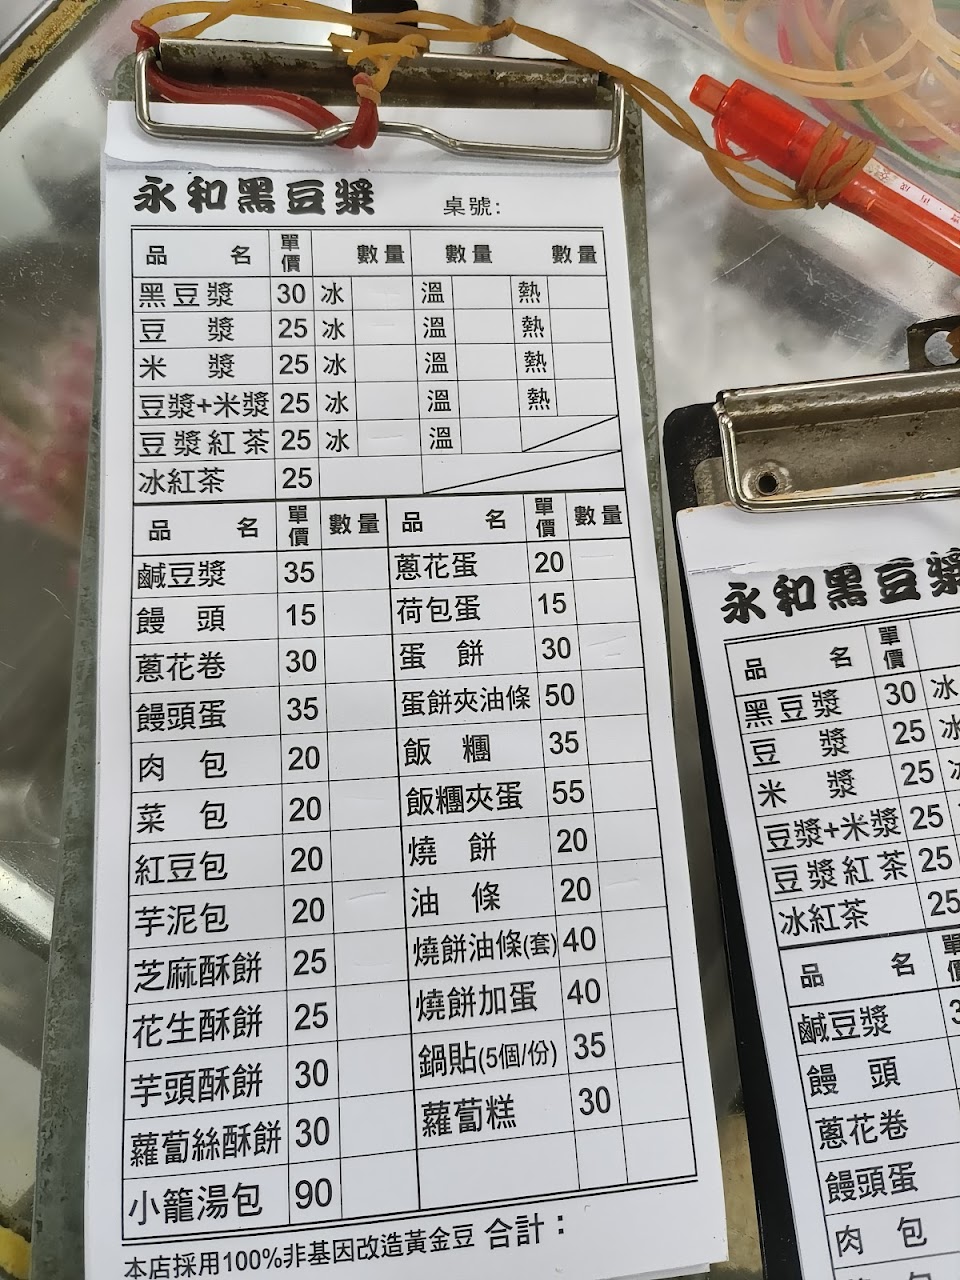 永和黑豆漿 桌號:
品名 單價 數量 數量 數量
黑豆漿 30 冰 溫 熱
豆漿 25 冰 溫 熱
米漿 25 冰 溫 熱
豆漿+米漿 25 冰 溫 熱
豆漿紅茶 25 冰 溫
冰紅茶 25
品名 單價 數量 品名 單價 數量
鹹豆漿 35 蔥花蛋 20
饅頭 15 荷包蛋 15
蔥花卷 30 蛋餅 30
饅頭蛋 35 蛋餅夾油條 50
肉包 20 飯糰 35
菜包 20 飯糰夾蛋 55
紅豆包 20 燒餅 20
芋泥包 20 油條 20
芝麻酥餅 25 燒餅油條(套) 40
花生酥餅 25 燒餅加蛋 40
芋頭酥餅 30 鍋貼(5個/份) 35
蘿蔔絲酥餅 30 蘿蔔糕 30
小籠湯包 90
本店採用100%非基因改造黃金豆 合計：
永和黑豆漿
品名 單價
黑豆漿 30 冰
豆漿 25 冰
米漿 25
豆漿+米漿 25
豆漿紅茶 25
冰紅茶 25
品名
鹹豆漿
饅頭
蔥花卷
饅頭蛋
肉包